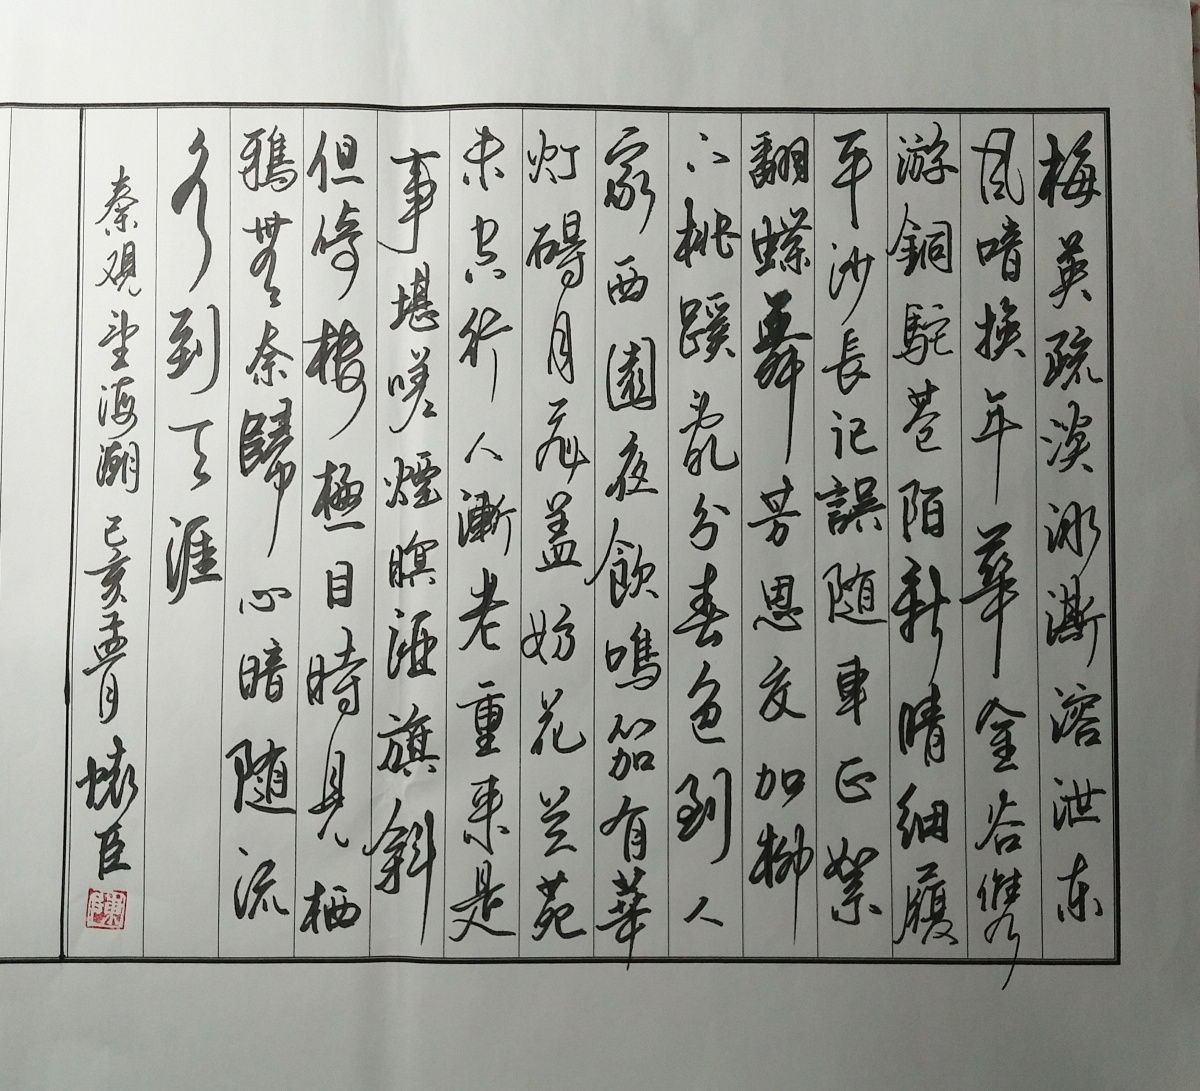 梅英疏淡冰澌溶泄东
風暗换年華金谷儁
游銅駝巷陌新晴细履
平沙長记誤随車正絮
翻蝶舞芳思交加柳
下桃蹊乱分春色到人
家西園夜飲鳴笳有華
灯碍月飛盖妨花兰苑
未空行人漸老重来是
事堪嗟煙暝酒旗斜
但倚楼極目時見栖
鴉無奈歸心暗随流
水到天涯
秦观望海潮 己亥 月 臣